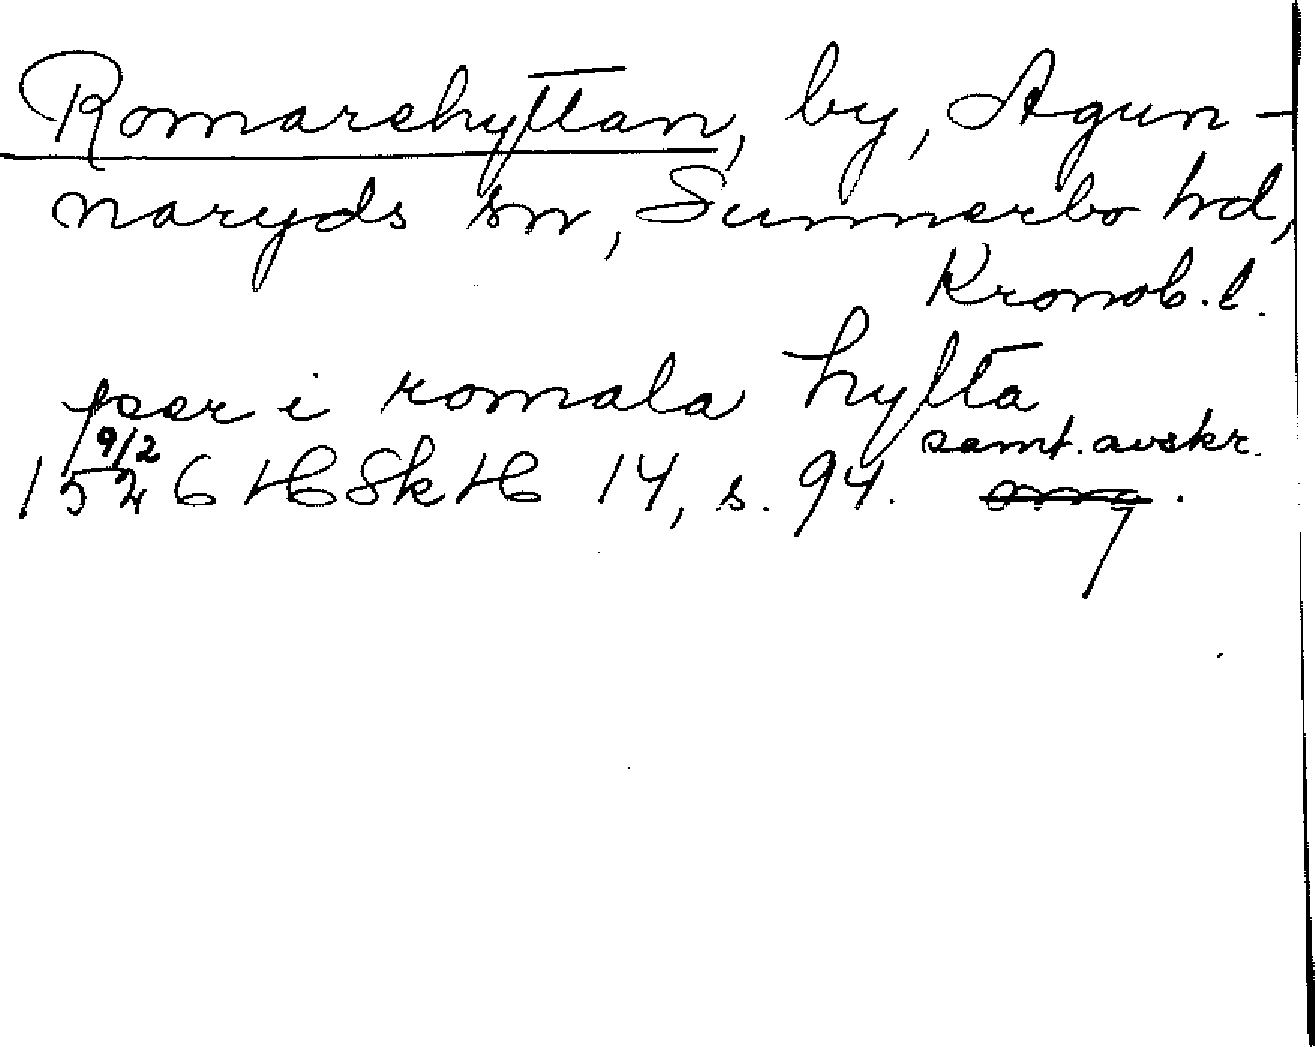 Romarehyttan, by, Agun-
naryds sn, Sunnerbo hd,
Kronob. l.
per i romala hylta
9/2
1526 HSkH 14, s. 94. samt. avskr.